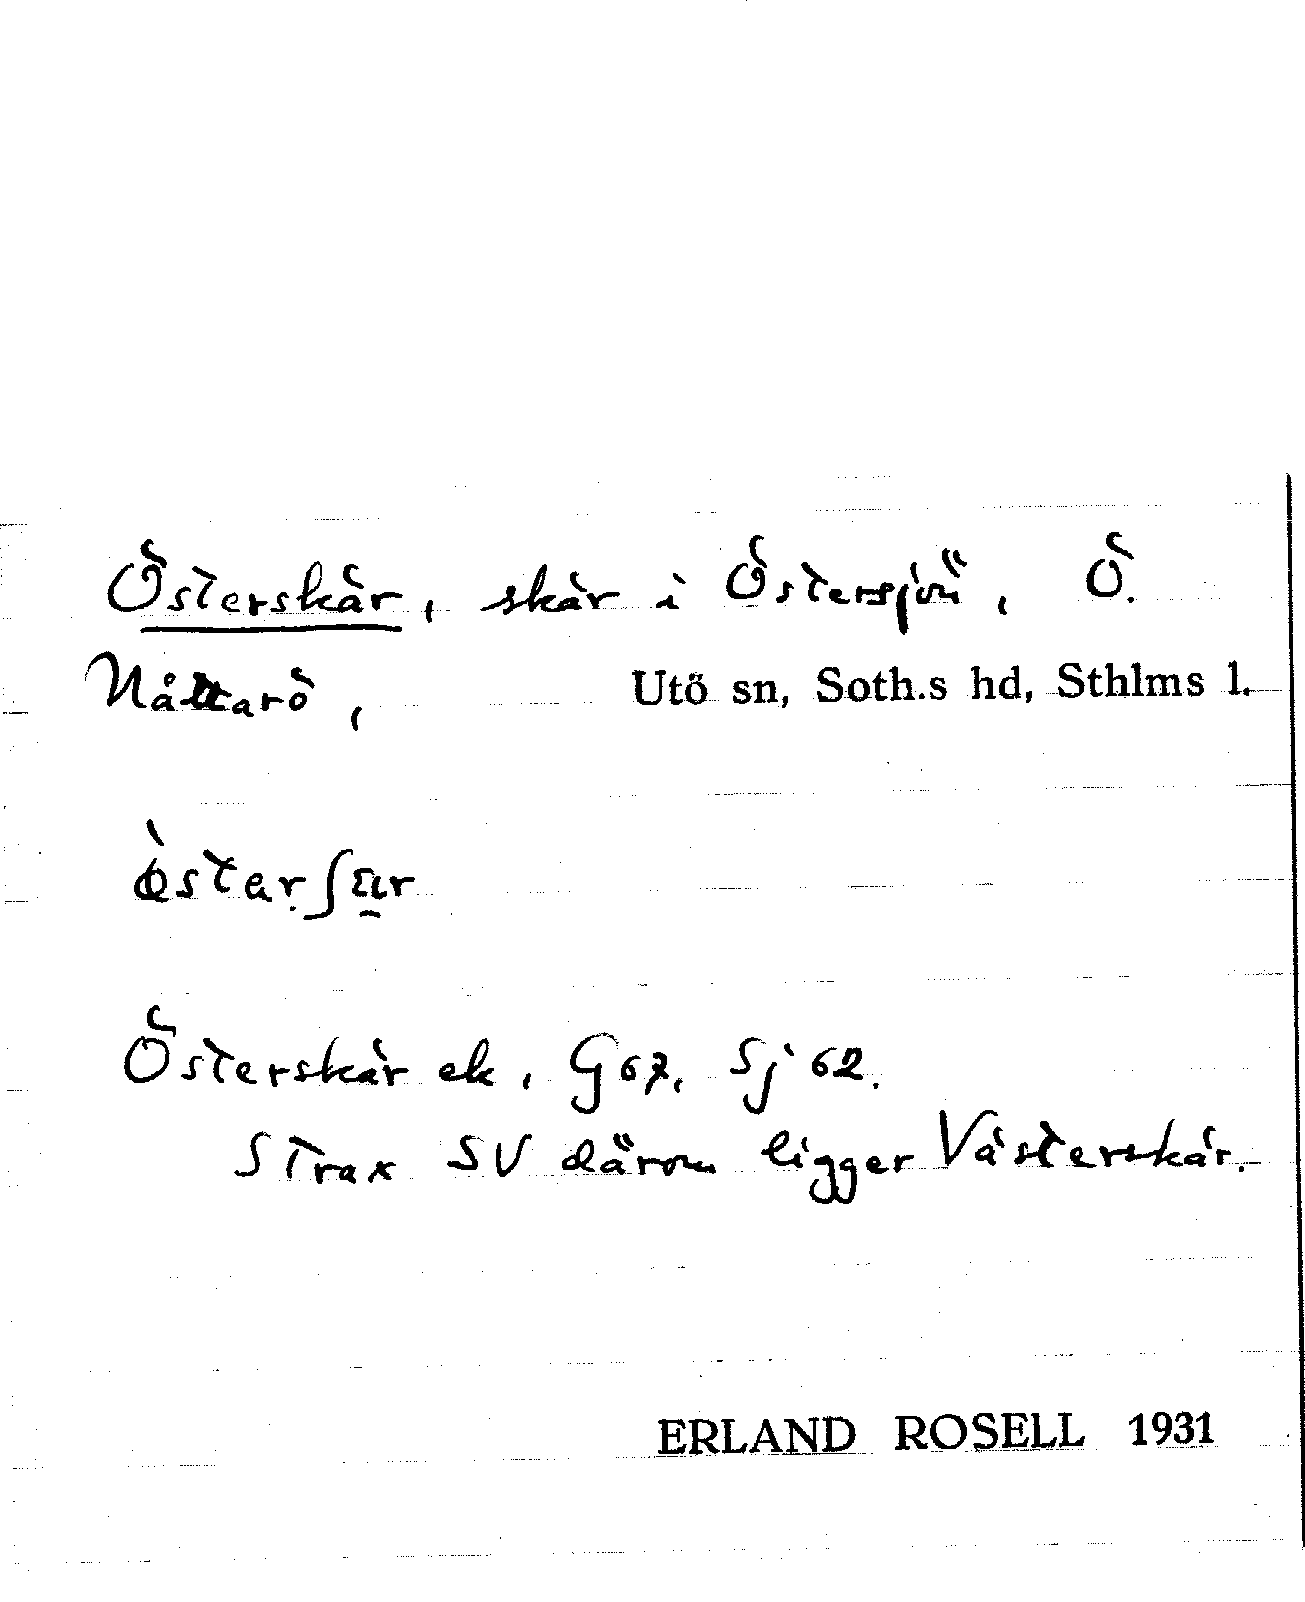 Österskär, skär i Östersjön, Ö.
Nåttarö, Utö sn, Soth.s hd, Sthlms l.
Österskär ek, G 67, Sj 62.
Strax SV därom ligger Västerskär.
ERLAND ROSELL 1931